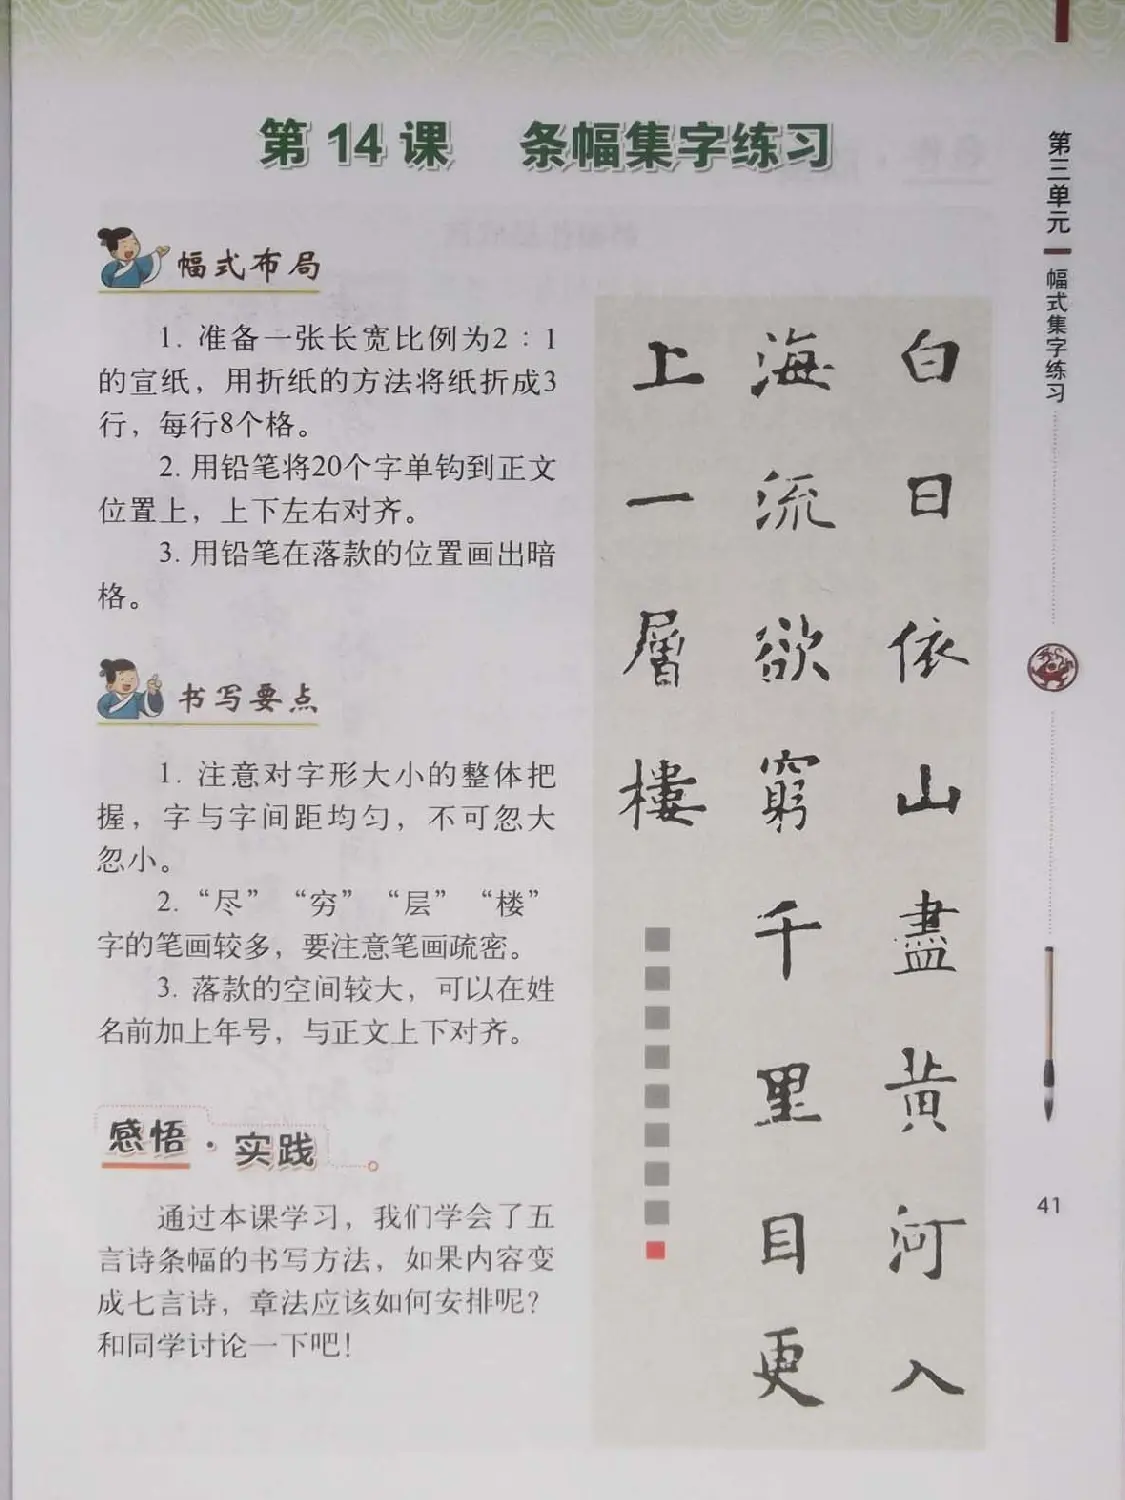 第14课 条幅集字练习
幅式布局
1. 准备一张长宽比例为2：1
的宣纸，用折纸的方法将纸折成3
行，每行8个格。
2. 用铅笔将20个字单钩到正文
位置上，上下左右对齐。
3. 用铅笔在落款的位置画出暗
格。
书写要点
1. 注意对字形大小的整体把
握，字与字间距均匀，不可忽大
忽小。
2. “尽”“穷”“层”“楼”
字的笔画较多，要注意笔画疏密。
3. 落款的空间较大，可以在姓
名前加上年号，与正文上下对齐。
感悟·实践
通过本课学习，我们学会了五
言诗条幅的书写方法，如果内容变
成七言诗，章法应该如何安排呢？
和同学讨论一下吧！
白日依山盡黄河入
海流欲窮千里目更
上一層樓
第三单元
幅式集字练习
41